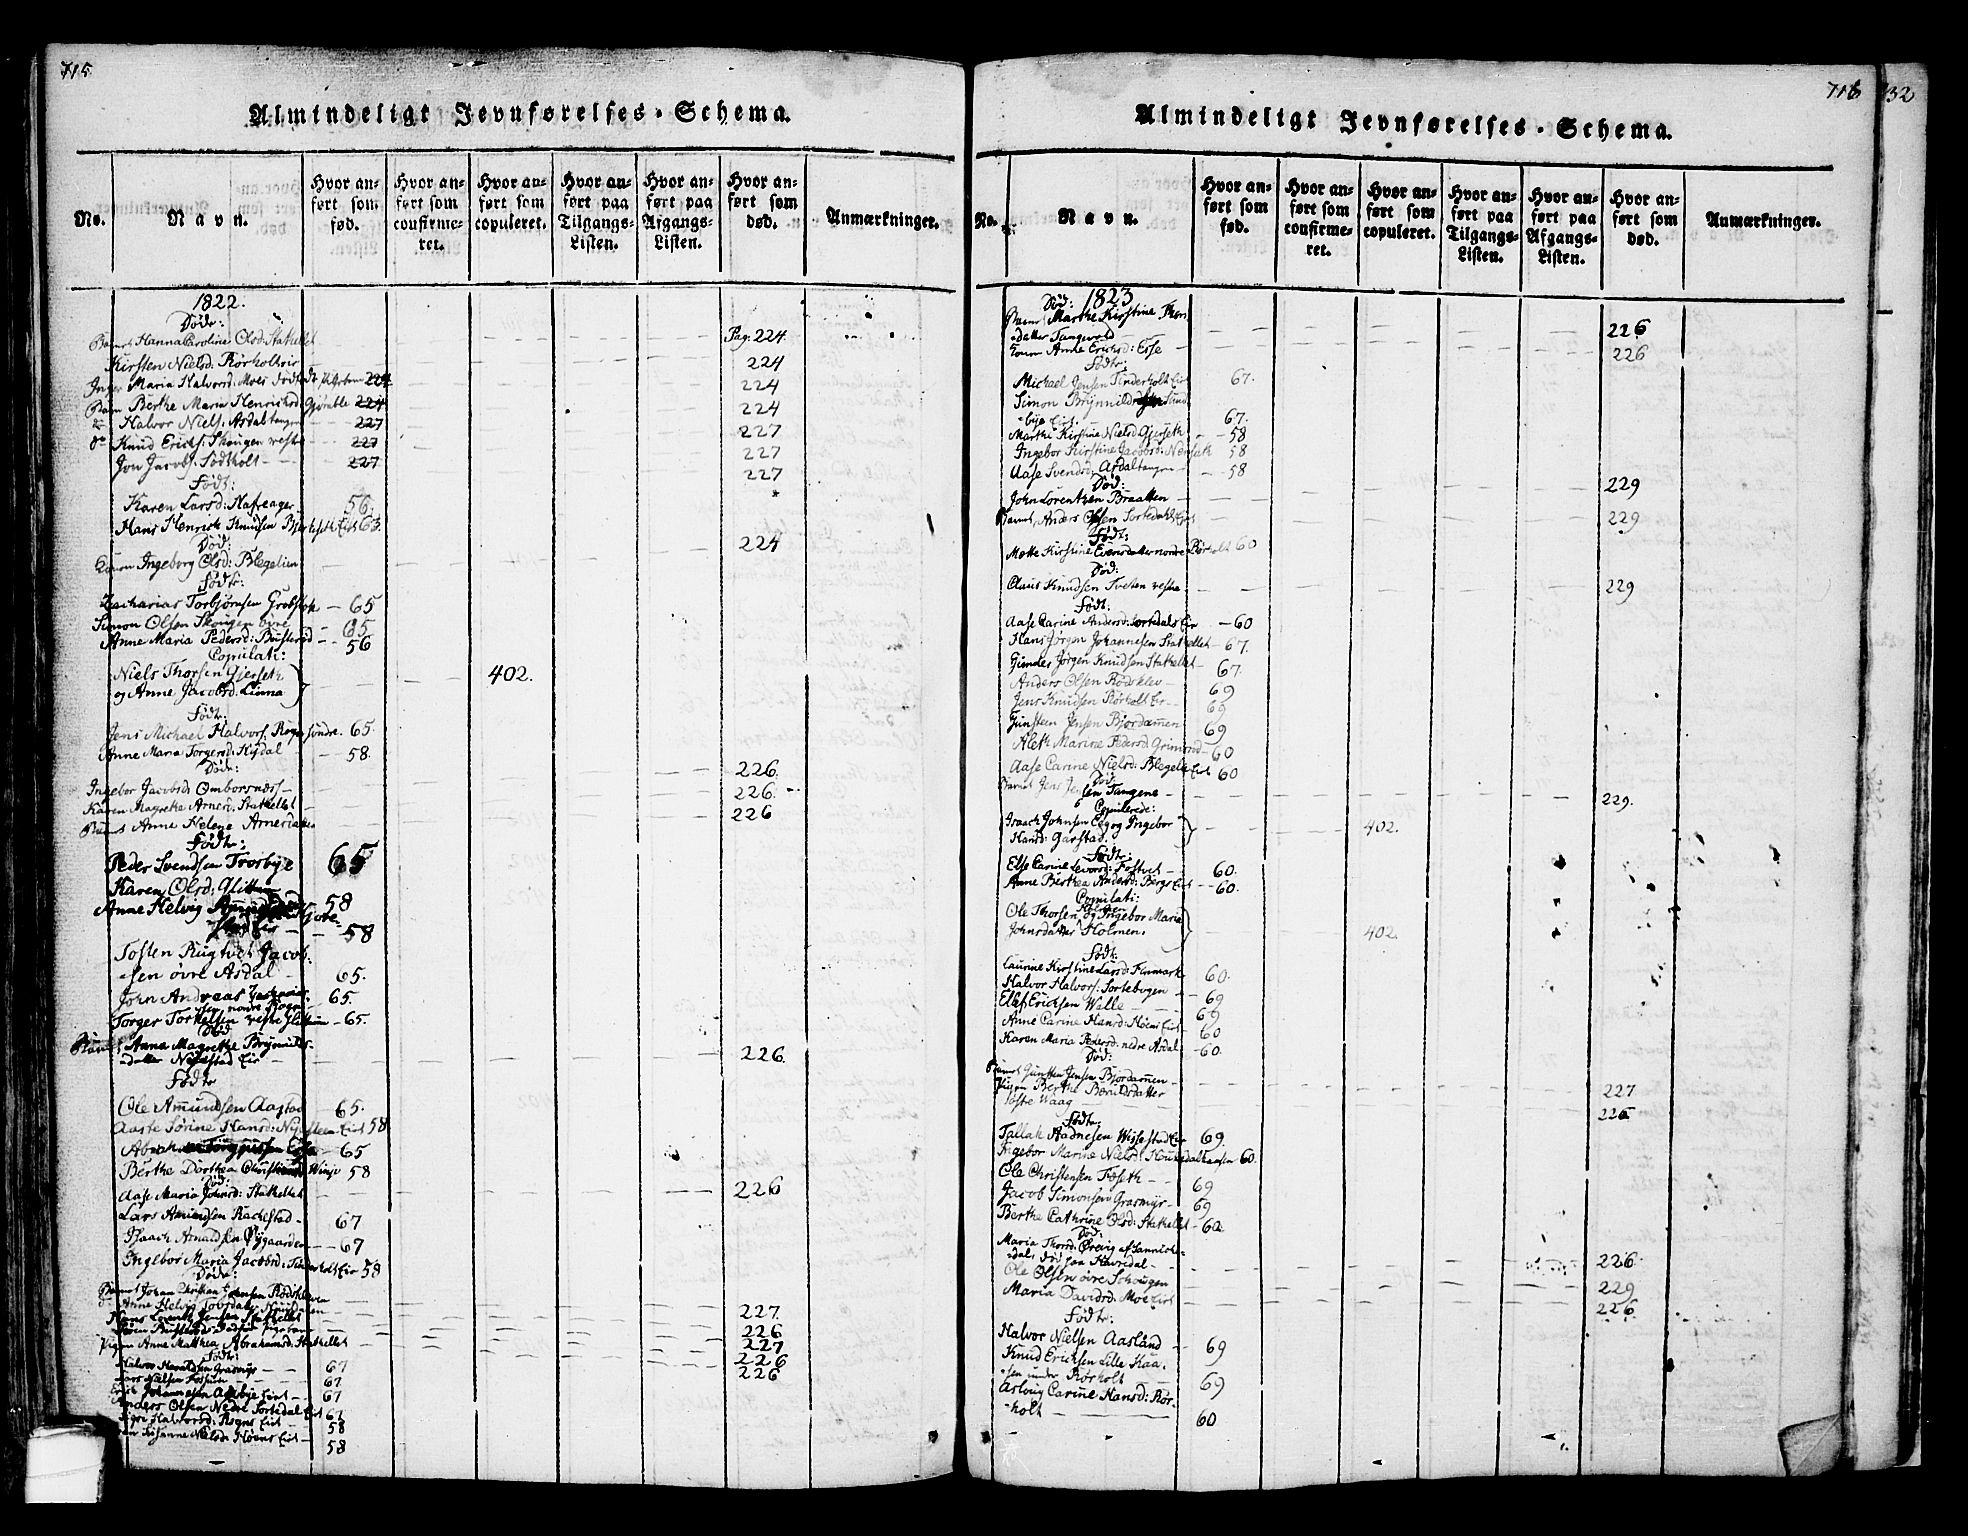 715
Almindeligt Jevnførelses-Schema.
No.
Navn.
Hvor anført som fød.
Hvor anført som confirmeret.
Hvor anført som copuleret.
Hvor anført paa Tilgangs-Listen.
Hvor anført paa Afgangs-Listen.
Hvor anført som død.
Anmærkninger.
1822.
Døde:
Hanna Caroline Olsd: Stathellet Pag. 224.
Kirsten Nielsd. Rørholt 224
Inger Maria Halvorsd: Moes 224 224
Barn Berthe Maria Henrichsd: 224 224
Halvor Niels. Asdaltangen 227 227
Knud Erichs. Skougen vestre 227 227
Jon Jacobs. Sødtholt 227 227
Født:
Karen Larsd: Hafreager 56.
Hans Henrich Knudsen 63.
Død:
Konen Ingeborg Olsd: Blegelien 224
Født:
Zacharias Torbjørnsen Grobstok 65
Simon Olsen Skougen øvre 65
Anne Maria Pedersd: Busterød 56
Copulati:
Niels Thorsen Gjerseth
og Anne Jacobsd. Linna 402.
Født:
Jens Michael Halvors. Rogn søndre. 65
Anne Maria Torgersd: 58.
Døde:
Ingebor Jacobsd: Omborsnæs 226.
Karen Magrethe Arnesd. Stathellet 226.
Anne Helene Arnesdatter 226
Født:
Peder Svendsen Trosbye 65
Karen Olsd: Glittum 58
Anne Helvig 58
Tosten Rugtvedt Jacob-
sen øvre Asdal 65.
John Andreas
65.
Torger Torkelsen vestre Glittum 65.
Død
Anna Magrethe Brynnilds-
datter Eir 226.
Født
Ole Amundsen Aastad 65.
Aaste Sørine Hansd: Eiet 58
65
Berthe Dorthea 58
Død:
Aase Maria Johnsd: Stathellet 226
Lars Amundsen Rachestad 67
Isaach Arnaldsen Nygaarden 67
Ingebor Maria Jacobsd: 58
Døde:
Barnet Johan Christian Jensen Rødskleven 227.
Anne Helvig 226
Hans Lorentz Jensen Stathellet 227
226
Pigen Anne Mathea Abrahamsd. Stathellet 226
Født:
Halvor Haraldsen Grasmyr 67
Lars Nielsen Fossum 67
Erich Johannesen 67
Anders Olsen Nedre Sortedal Eiet 67
Halvorsd: Rogns Eiet 58
Susanne Nielsd: Høens Eiet 58
716
732
Almindeligt Jevnførelses-Schema.
No.
Navn.
Hvor anført som fød.
Hvor anført som confirmeret.
Hvor anført som copuleret.
Hvor anført paa Tilgangs-Listen.
Hvor anført paa Afgangs-Listen.
Hvor anført som død.
Anmærkninger.
1823
Død:
Barnet Marthe Kirstine Thors-
datter Tangevald 226
Konen Anne Erichsd: Esse 226
Født:
Michael Jensen Tinderholt Eiet 67.
Simon Brynnildsen Sund-
bye Eiet. 67.
Marthe Kirstine Nielsd. Gjerseth 58
Ingebor Kirstine Jacobsd. 58
Aase Svendsd: Asdaltangen 58
Død:
John Lorentzen Braatten 229
Barnet Anders Olsen Sortedals Eiet 229
Født:
Mette Kirstine Evensdatter nordre Rørholt 60
Død:
Claus Knudsen Tveten vestre 229
Født:
Aase Carine Andersd: Sortedals Eir 60
Hans Jørgen Johannesen Stathellet 67.
Gunder Jørgen Knudsen Stathellet 67.
Anders Olsen Rødsklev 69
Jens Knudsen Rørholt Eir 69
Gunsteen Jensen Bjordammen 69
Aleth Marine Pedersd. Grimsrød 60
Aase Carine Nielsd: Blegelie Eiet 60
Død:
Barnet Jens Jensen Tangene 229.
Copulerede:
Isaach Johnsen og Ingebor
Hansd: Garstad. 402.
Født:
Else Carine Levorsd: Fostvet 60.
Anne Berthea Andersd: Bergs Eiet 60.
Copulati:
Ole Thorsen Holmen og Ingebor Maria
Johnsdatter Holmen. 402.
Født:
Laurine Kirstine Larsd: Finmark 60.
Halvor Halvors. Sortebogen 69
Ellef Ericksen Walle 69
Anne Carine Hansd: Høens Eiet 60
Karen Maria Pedersd: nedre Asdal 60.
Død:
Barnet Gunsten Jensen Bjordammen 227
Pigen Berthe Bærulsdatter
Østre Waag 226
Født:
Tallak Aadnesen Wissestad Eir 69.
Ingebor Marine Nielsd: 60.
Ole Christensen Foseth 69
Jacob Simonsen Grasmyr 69
Berthe Cathrine Olsd: Stathellet 60.
Død:
Maria Thorsd: Ørevig af Sannicke-
dal, død paa Havredal 226.
Ole Olsen øvre Schougen 229
Maria Davidsd: Moe Eiet 226
Født:
Halvor Nielsen Aasland 69
Knud Ericksen Lille Kaa-
sen under Rørholt 69
Aslaug Carine Hansd: Rør-
holt 60